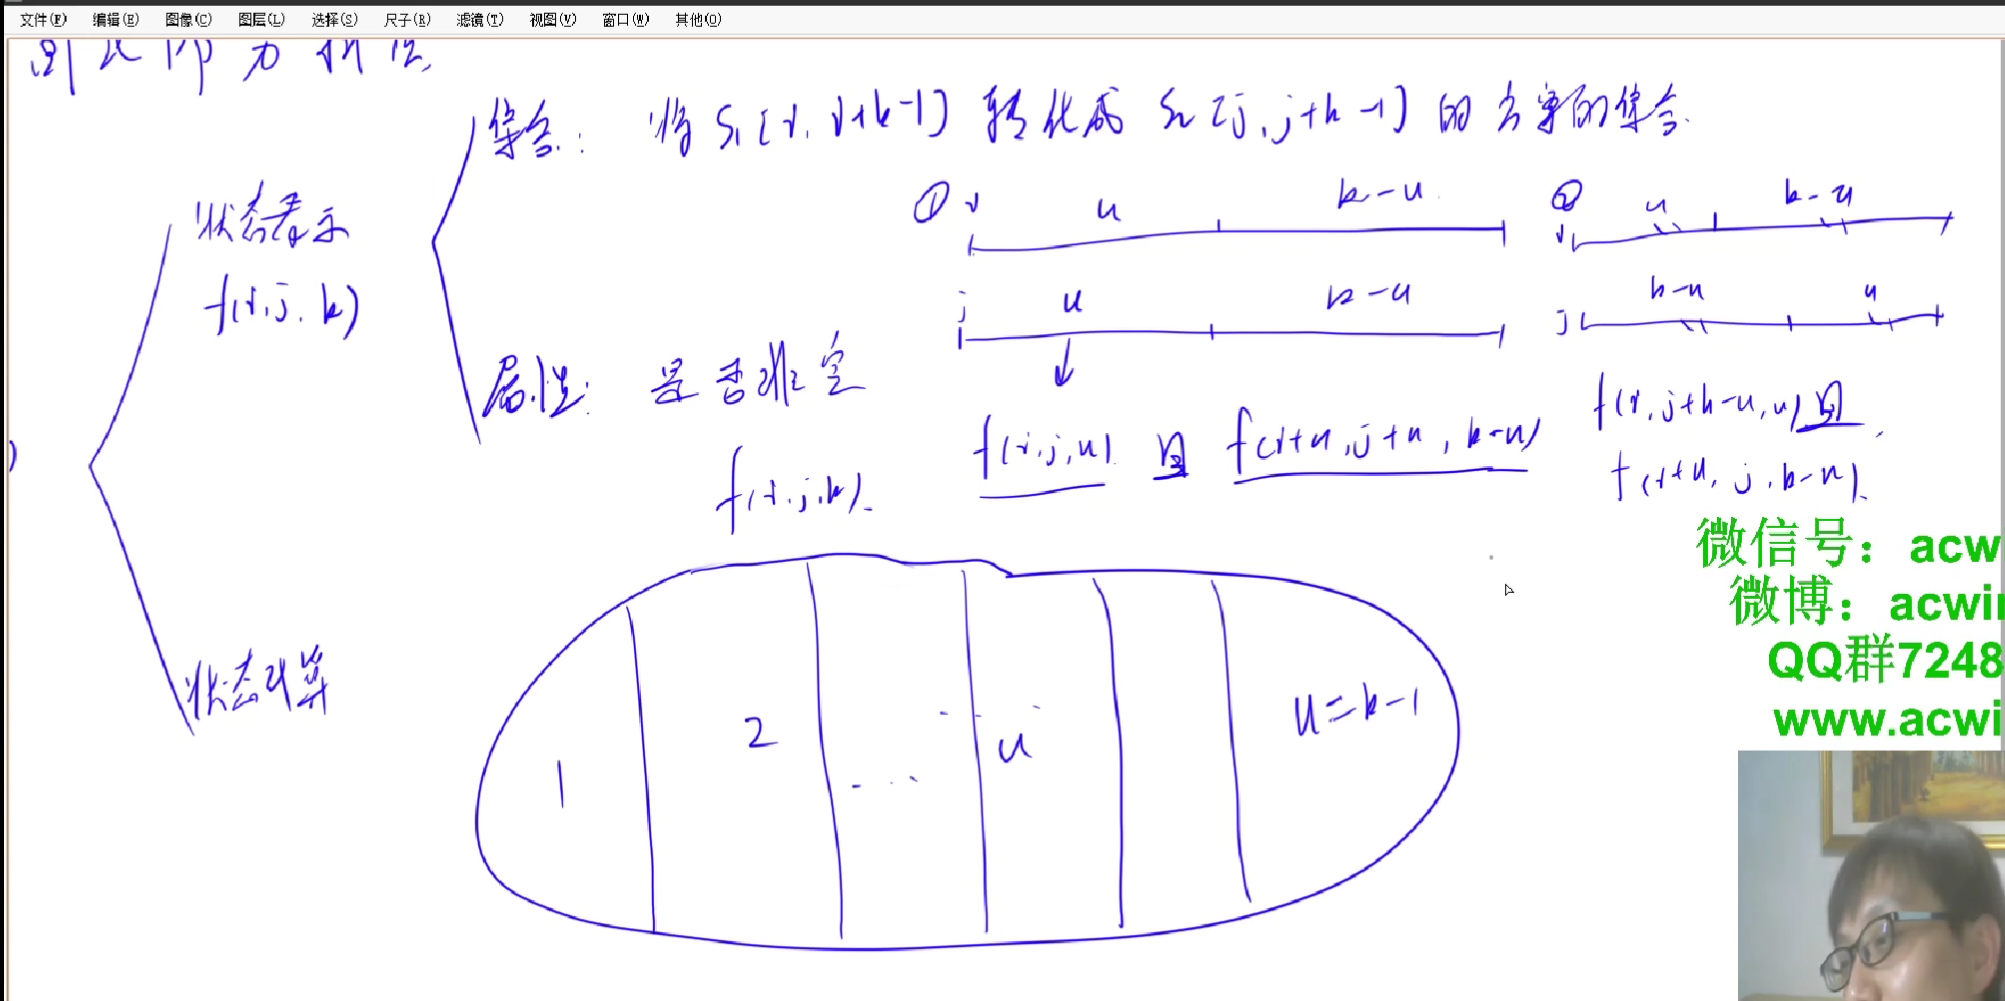 文件(F) 编辑(E) 图像(C) 图层(L) 选择(S) 尺子(R) 滤镜(T) 视图(V) 窗口(W) 其他(O)
集合: 将 S1[i, i+k-1] 转化成 S2[j, j+k-1] 的方案的集合.
状态表示
f(i,j,k)
① i u k-u
j u k-u
② i u k-u
j k-u u
属性: 是否非空
f(i,j,k).
f(i,j,u) 且 f(i+u,j+u,k-u)
f(i,j+k-u,u) 且
f(i+u,j,k-u).
状态计算
1 2 ... u u=k-1
微信号: acw
微博: acwi
QQ群7248
www.acwi